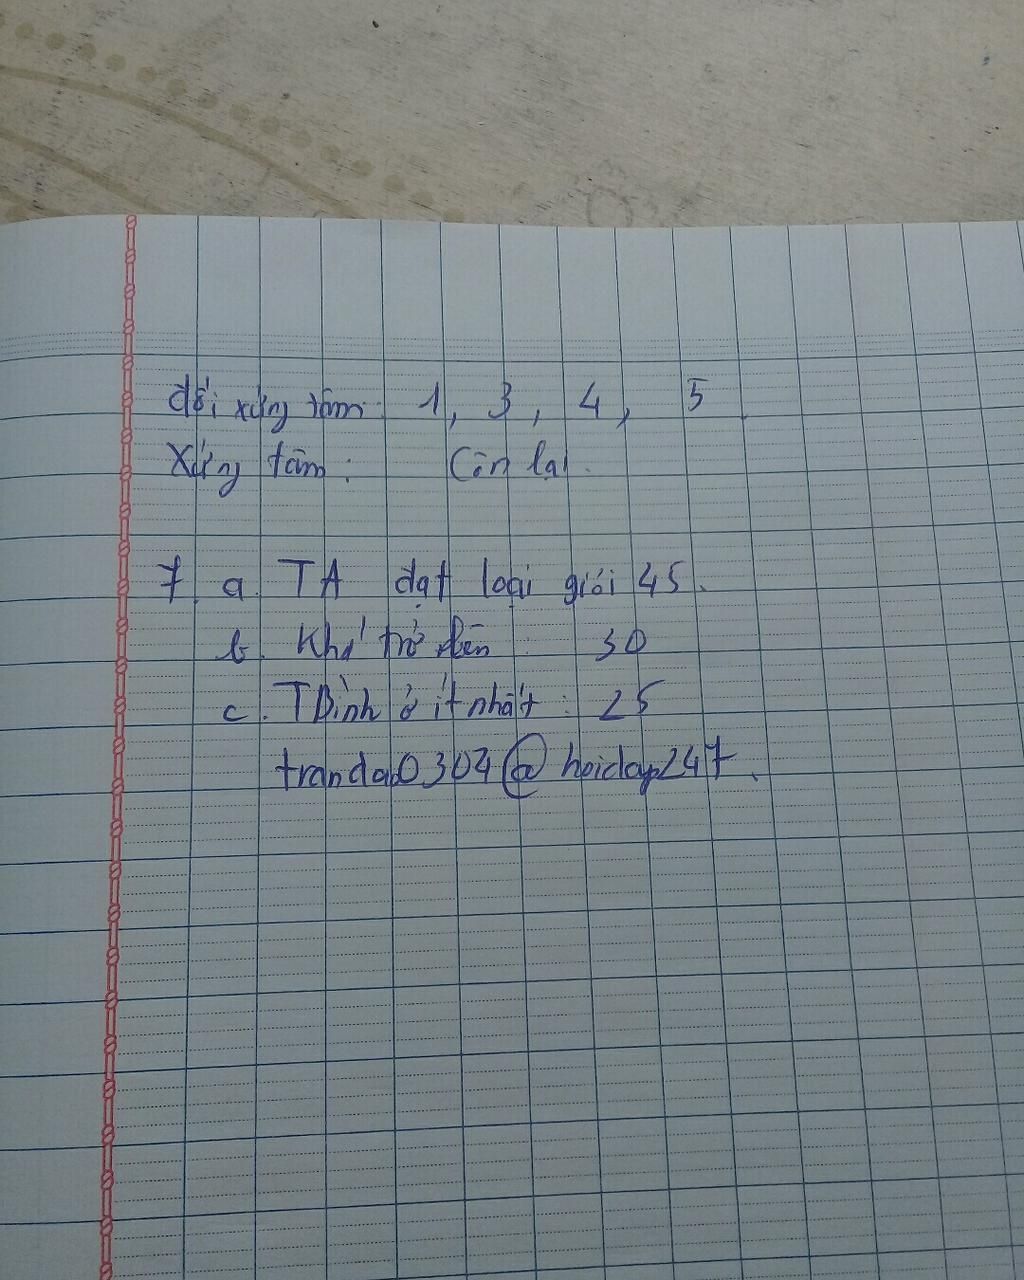 đối xứng tâm: 1, 3, 4, 5.
Xứng tâm: Còn lại.
7. a. TA đạt loại giỏi 45.
b. Khá trở lên: 30
c. TBình ở ít nhất: 25
trandab0304@hoidap247.